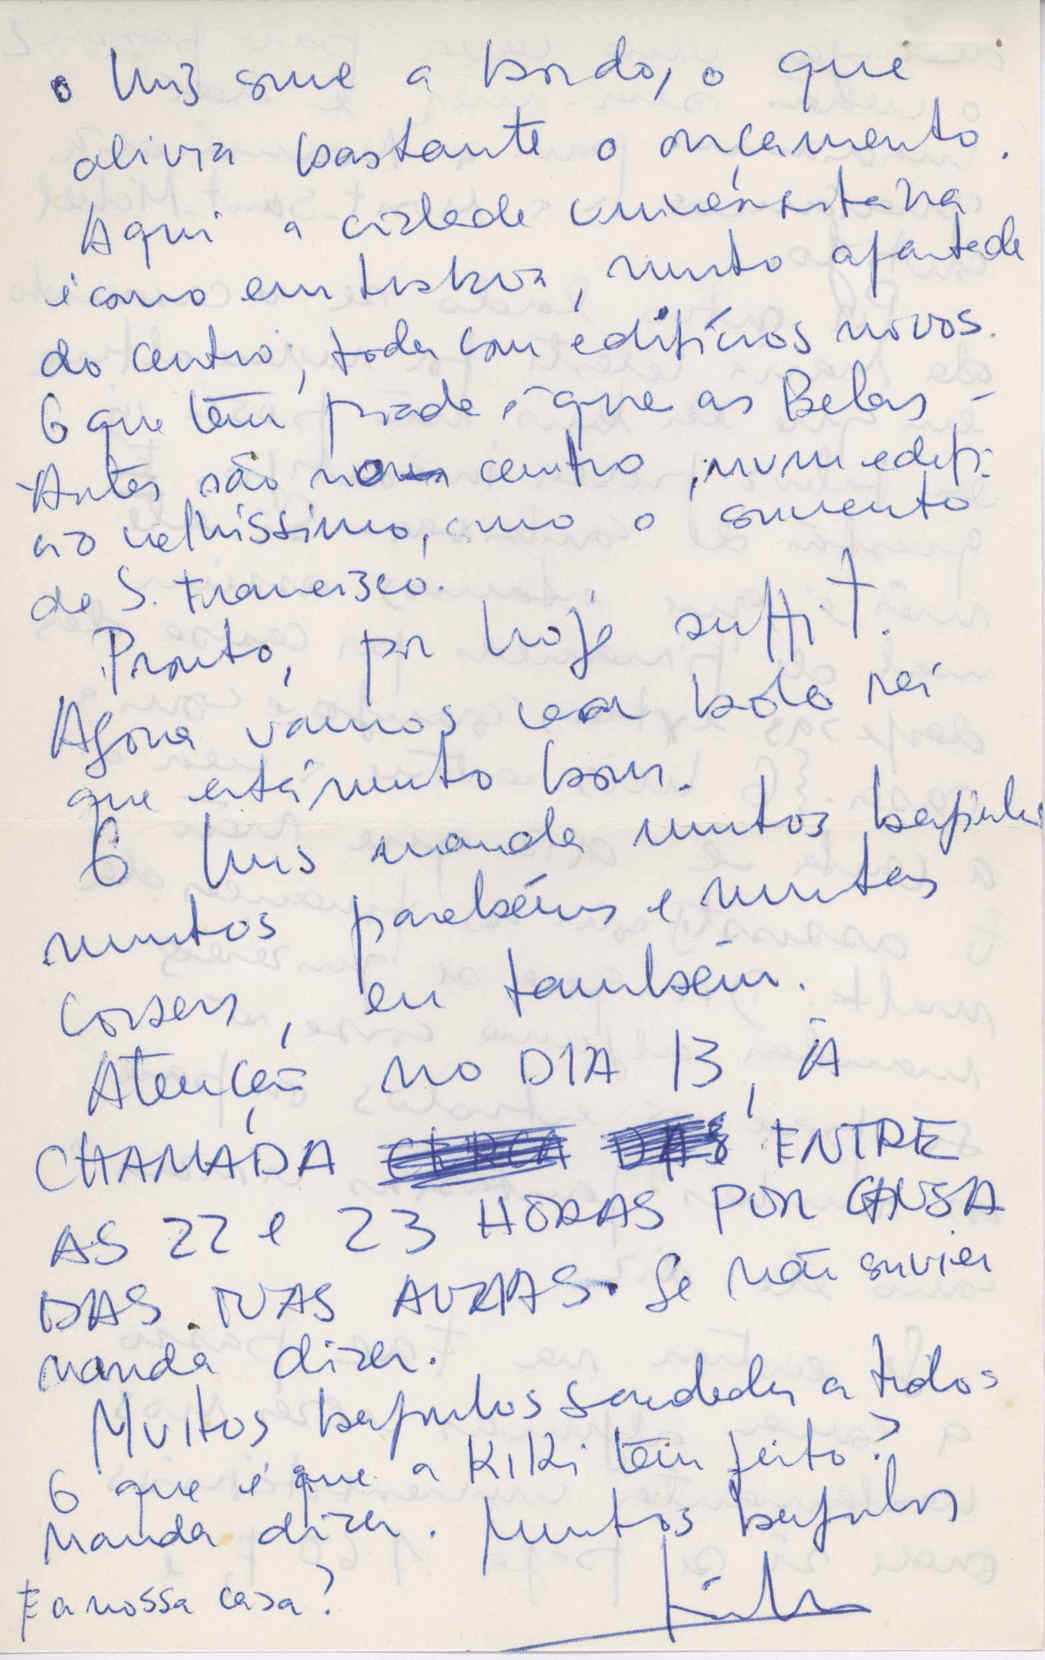 o Luis come a bordo, o que
alivia bastante o orçamento.
Aqui a cidade universitária
é como em Lisboa, muito afastada
do centro, toda com edifícios novos.
O que tem piada é que as Belas-
-Artes são no centro, num edifí-
cio velhíssimo, como o convento
de S. Francisco.
Pronto, por hoje suffit.
Agora vamos ver bolo rei
que está muito bom.
O Luis manda muitos beijinhos
muitos parabéns e muitas
coisas, eu também.
Atenção no DIA 13, À
CHAMADA CERCA DAS ENTRE
AS 22 e 23 HORAS POR CAUSA
DAS TUAS AULAS. Se não convier
manda dizer.
Muitos beijinhos saudades a todos
O que é que a KiKi tem feito?
Manda dizer. Muitos beijinhos
E a nossa casa?